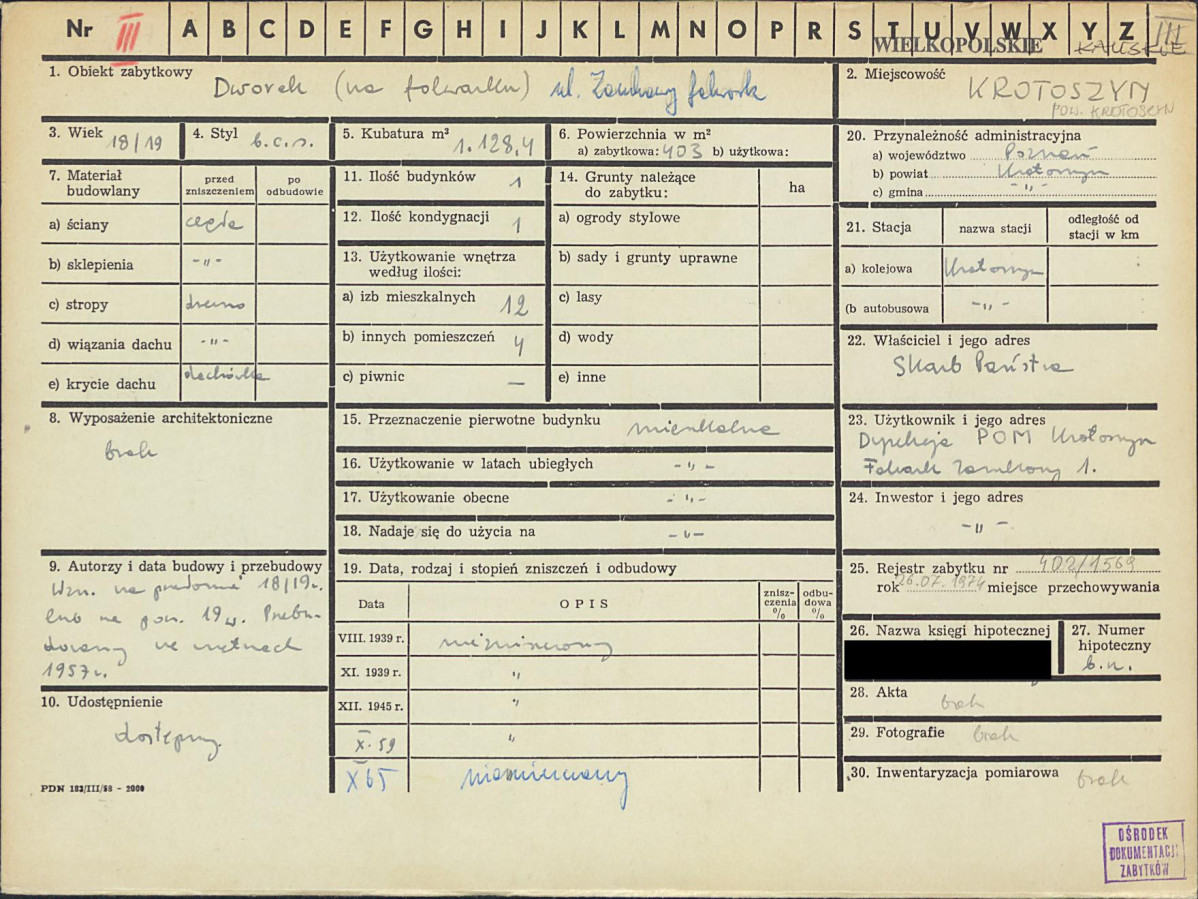 Nr III A B C D E F G H I J K L M N O P R S T U V W X Y Z III
WIELKOPOLSKIE KALISKIE
1. Obiekt zabytkowy Dworek (na folwarku) ul. Zamkowy folwark
2. Miejscowość KROTOSZYN
POW. KROTOSZYN
3. Wiek 18/19
4. Styl b.c.s.
5. Kubatura m³ 1.128,4
6. Powierzchnia w m²
a) zabytkowa: 403 b) użytkowa:
7. Materiał budowlany
przed zniszczeniem
po odbudowie
a) ściany cegła
b) sklepienia -"-
c) stropy drewno
d) wiązania dachu -"-
e) krycie dachu dachówka
8. Wyposażenie architektoniczne
brak
9. Autorzy i data budowy i przebudowy
Wzn. na przełomie 18/19 w.
lub na pocz. 19 w. Przebu-
dowany we wnętrzach
1957 r.
10. Udostępnienie
dostępny.
PDN 182/III/58 - 2000
11. Ilość budynków 1
12. Ilość kondygnacji 1
13. Użytkowanie wnętrza
według ilości:
a) izb mieszkalnych 12
b) innych pomieszczeń 4
c) piwnic —
14. Grunty należące
do zabytku:
ha
a) ogrody stylowe
b) sady i grunty uprawne
c) lasy
d) wody
e) inne
15. Przeznaczenie pierwotne budynku mieszkalne
16. Użytkowanie w latach ubiegłych -"-
17. Użytkowanie obecne -"-
18. Nadaje się do użycia na -"-
19. Data, rodzaj i stopień zniszczeń i odbudowy
Data OPIS znisz-czenia % odbu-dowa %
VIII. 1939 r. niezniszczony
XI. 1939 r. "
XII. 1945 r. "
X. 59 "
X 65 niezniszczony
20. Przynależność administracyjna
a) województwo Poznań
b) powiat Krotoszyn
c) gmina -"-
21. Stacja
nazwa stacji
odległość od stacji w km
a) kolejowa Krotoszyn
(b autobusowa -"-
22. Właściciel i jego adres
Skarb Państwa
23. Użytkownik i jego adres
Dyrekcja POM Krotoszyn
Folwark Zamkowy 1.
24. Inwestor i jego adres
-"-
25. Rejestr zabytku nr 402/1569
rok 26.07.1974 miejsce przechowywania
26. Nazwa księgi hipotecznej
27. Numer
hipoteczny
b.n.
28. Akta brak
29. Fotografie brak
30. Inwentaryzacja pomiarowa brak
OŚRODEK
DOKUMENTACJI
ZABYTKÓW